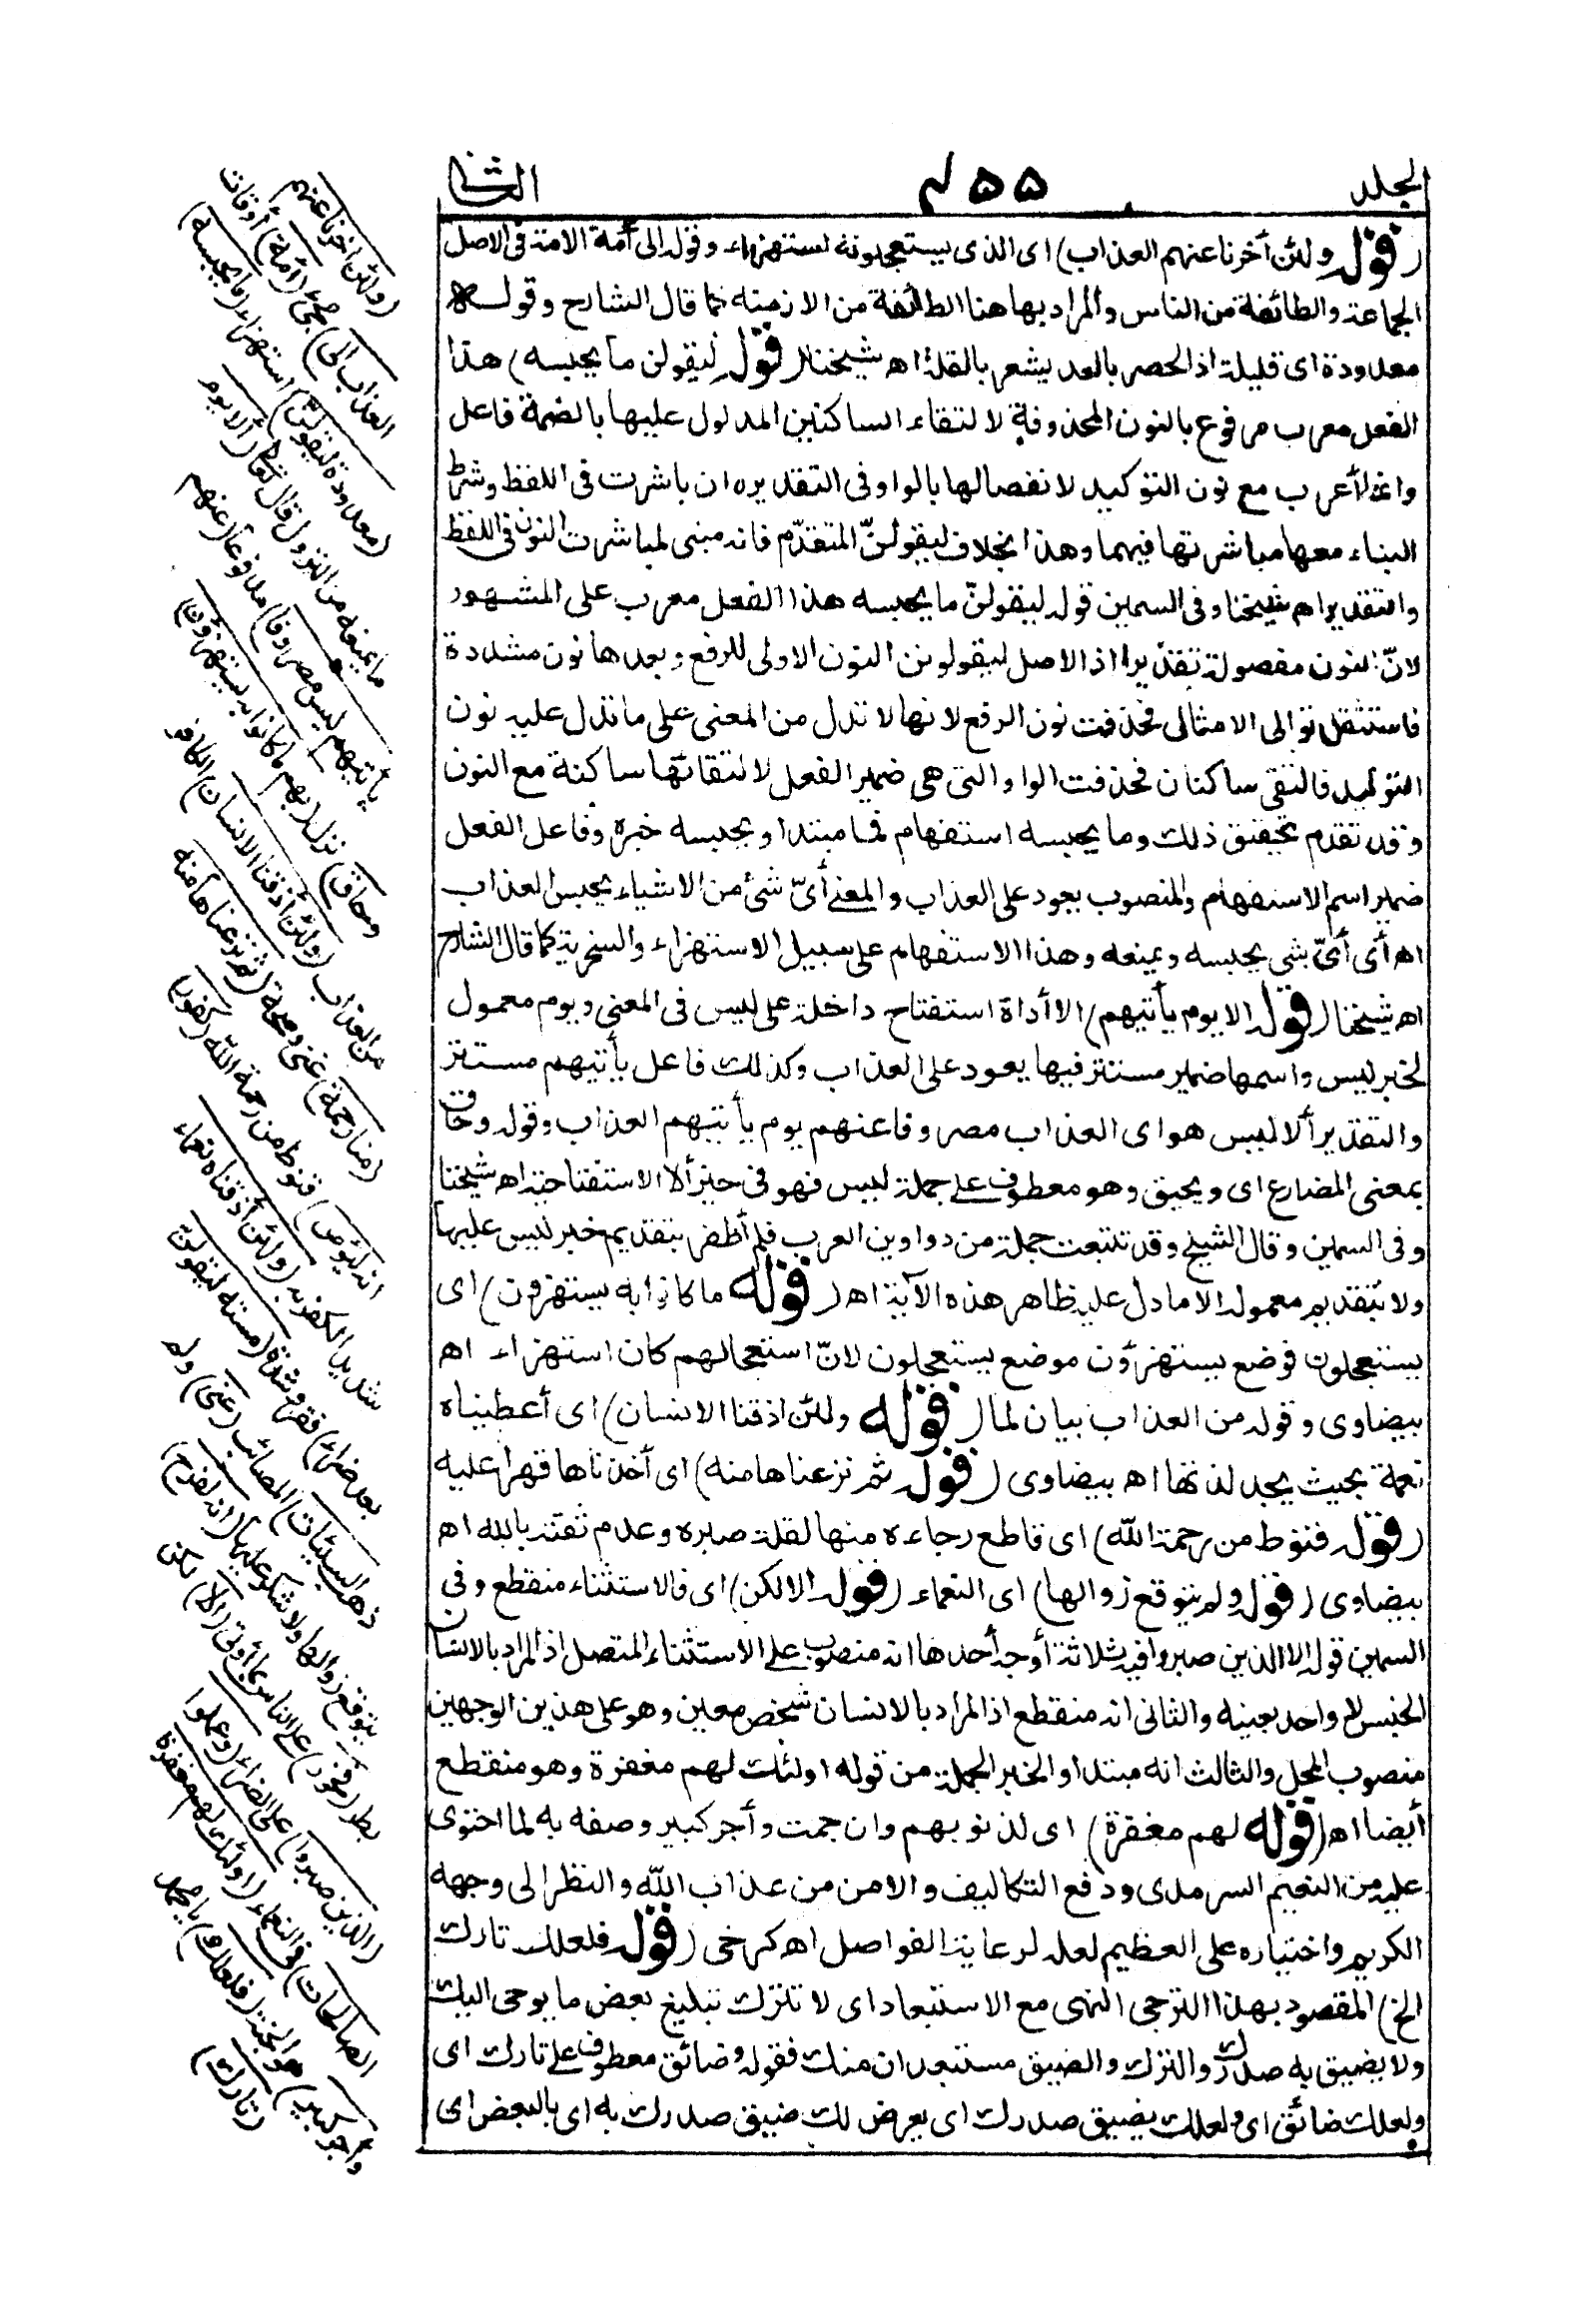 الجلد ۴۵۵ الثانى
(قوله ولئن أخرنا عنهم العذاب) اى الذى يستعجلونه استهزاء وقوله الى أمة الامة فى الاصل
الجماعة والطائفة من الناس والمراد بها هنا الطائفة من الازمنة كما قال الشارح وقوله
معدودة اى قليلة اذ الحصر بالعد يشعر بالقلة اه شيخنا (قوله ليقولن ما يحبسه) هذا
الفعل معرب مرفوع بالنون المحذوفة لالتقاء الساكنين المدلول عليها بالضمة فاعل
وانما أعرب مع نون التوكيد لانفصالها بالواو فى التقدير وان باشرت فى اللفظ وشرط
البناء معها مباشرتها فيهما وهذا بخلاف ليقولنّ المتقدّم فانه مبنى لمباشرت النون فى اللفظ
والتقدير اه شيخنا وفى السمين قوله ليقولنّ ما يحبسه هذا الفعل معرب على المشهور
لانّ النون مفصولة تقديرا اذ الاصل ليقولونن النون الاولى للرفع وبعدها نون مشددة
فاستثقل توالى الامثال فحذفت نون الرفع لانها لا تدل من المعنى على ما تدل عليه نون
التوكيد فالتقى ساكنان فحذفت الواو التى هى ضمير الفعل لالتقائها ساكنة مع النون
وقد تقدم تحقيق ذلك وما يحبسه استفهام فما مبتدا ويحبسه خبره وفاعل الفعل
ضمير اسم الاستفهام والمنصوب يعود على العذاب والمعنى أىّ شئ من الاشياء يحبس العذاب
اه أى أىّ شى يحبسه ويمنعه وهذا الاستفهام على سبيل الاستهزاء والسخرية كما قال الشارح
اه شيخنا (قوله الا يوم يأتيهم) الا أداة استفتاح داخلة على ليس فى المعنى ويوم معمول
لخبر ليس واسمها ضمير مستتر فيها يعود على العذاب وكذلك فاعل يأتيهم مستتر
والتقدير ألا ليس هو اى العذاب مصروفا عنهم يوم يأتيهم العذاب وقوله وحاق
بمعنى المضارع اى ويحيق وهو معطوف على جملة ليس فهو فى حيز ألا الاستفتاحية اه شيخنا
وفى السمين وقال الشيخ وقد تتبعت جملة من دواوين العرب فلم أظفر بتقديم خبر ليس عليها
ولا بتقديم معموله الا ما دل عليه ظاهر هذه الآية اه (قوله ما كانوا به يستهزؤن) اى
يستعجلون فوضع يستهزؤن موضع يستعجلون لانّ استعجالهم كان استهزاء اه
بيضاوى وقوله من العذاب بيان لما (قوله ولئن اذقنا الانسان) اى أعطيناه
نعمة بحيث يجد لذتها اه بيضاوى (قوله ثم نزعناها منه) اى أخذناها قهرا عليه
(قوله فنوط من رحمة الله) اى قاطع رجاءه منها لقلة صبره وعدم ثقته بالله اه
بيضاوى (قوله ولم يتوقع زوالها) اى النعماء (قوله الا لكن) اى فالاستثناء منقطع وفى
السمين قوله الا الذين صبروا فيه ثلاثة أوجه أحدها انه منصوب على الاستثناء المتصل اذ المراد بالانسان
الجنس لا واحد بعينه والثانى انه منقطع اذ المراد بالانسان شخص معين وهو على هذين الوجهين
منصوب المحل والثالث انه مبتدا والخبر الجملة من قوله اولئك لهم مغفرة وهو منقطع
أيضا اه (قوله لهم مغفرة) اى لذنوبهم وان جمت وأجر كبير وصفه به لما احتوى
عليه من النعيم السرمدى ودفع التكاليف والامن من عذاب الله والنظر الى وجهه
الكريم واختياره على العظيم لعله لرعاية الفواصل اه كرخى (قوله فلعلك تارك
الخ) المقصود بهذا الترجى النهى مع الاستبعاد اى لا تترك تبليغ بعض ما يوحى اليك
ولا يضيق به صدرك والترك والضيق مستبعدان منك فقوله وضائق معطوف على تارك اى
ولعلك ضائق اى ولعلك يضيق صدرك اى يعرض لك ضيق صدرك به اى بالبعض اى
(ولئن أخرنا عنهم
العذاب الى) مجئ (أمة) أوقات
(معدودة ليقولن) استهزاء (ما يحبسه)
ما يمنعه من النزول قال تعالى (الا يوم
يأتيهم ليس مصروفا) مدفوعا (عنهم
وحاق) نزل (بهم ما كانوا به يستهزؤن)
من العذاب (ولئن أذقنا الانسان) الكافر
(منا رحمة) غنى وصحة (ثم نزعناها منه
انه ليؤس) قنوط من رحمة الله (كفور)
شديد الكفر به (ولئن أذقناه نعماء
بعد ضراء) فقر وشدة (مسته ليقولن
ذهب السيئات) المصائب (عنى) ولم
يتوقع زوالها ولا شكر عليها (انه لفرح)
بطر (فخور) على الناس بما أوتى (الا) لكن
(الذين صبروا) على الضراء (وعملوا
الصالحات) فى النعماء (اولئك لهم مغفرة
وأجر كبير) هو الجنة (فلعلك) يا محمد
(تارك)